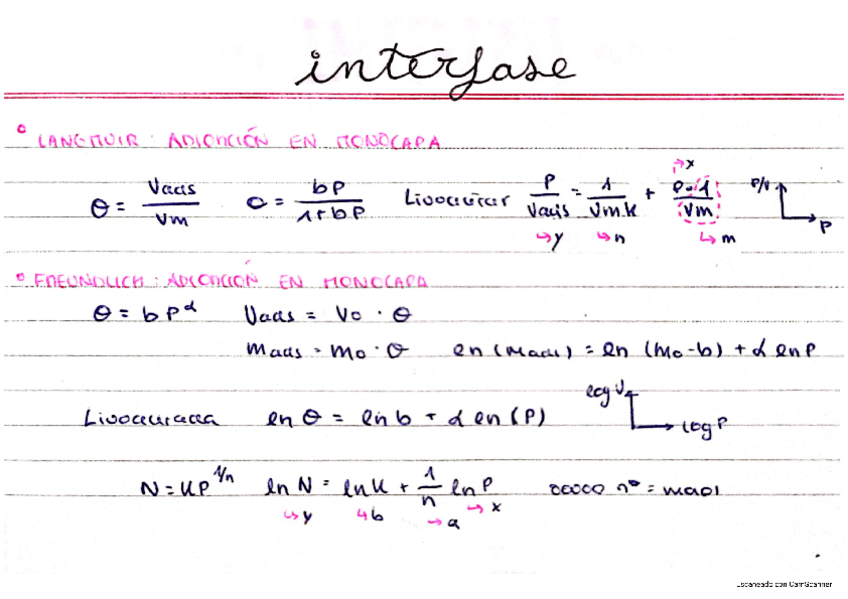 interfase
° LANGMUIR: ADSORCIÓN EN MONOCAPA
θ = Vads / Vm    θ = bP / 1+bP    Linealizar P / Vads = 1 / Vm·k + P·1 / Vm    P/V    P
→x
↳y ↳n ↳m
° FREUNDLICH: ADSORCIÓN EN MONOCAPA
θ = bP^α    Vads = V₀ · θ
mads = m₀ · θ    ln (mads) = ln (m₀·b) + α ln P
Linealizada    ln θ = ln b + α ln (P)    log V    log P
N = KP^1/n    ln N = ln K + 1/n ln P    nº = mads
↳y ↳b →a →x
Escaneado con CamScanner